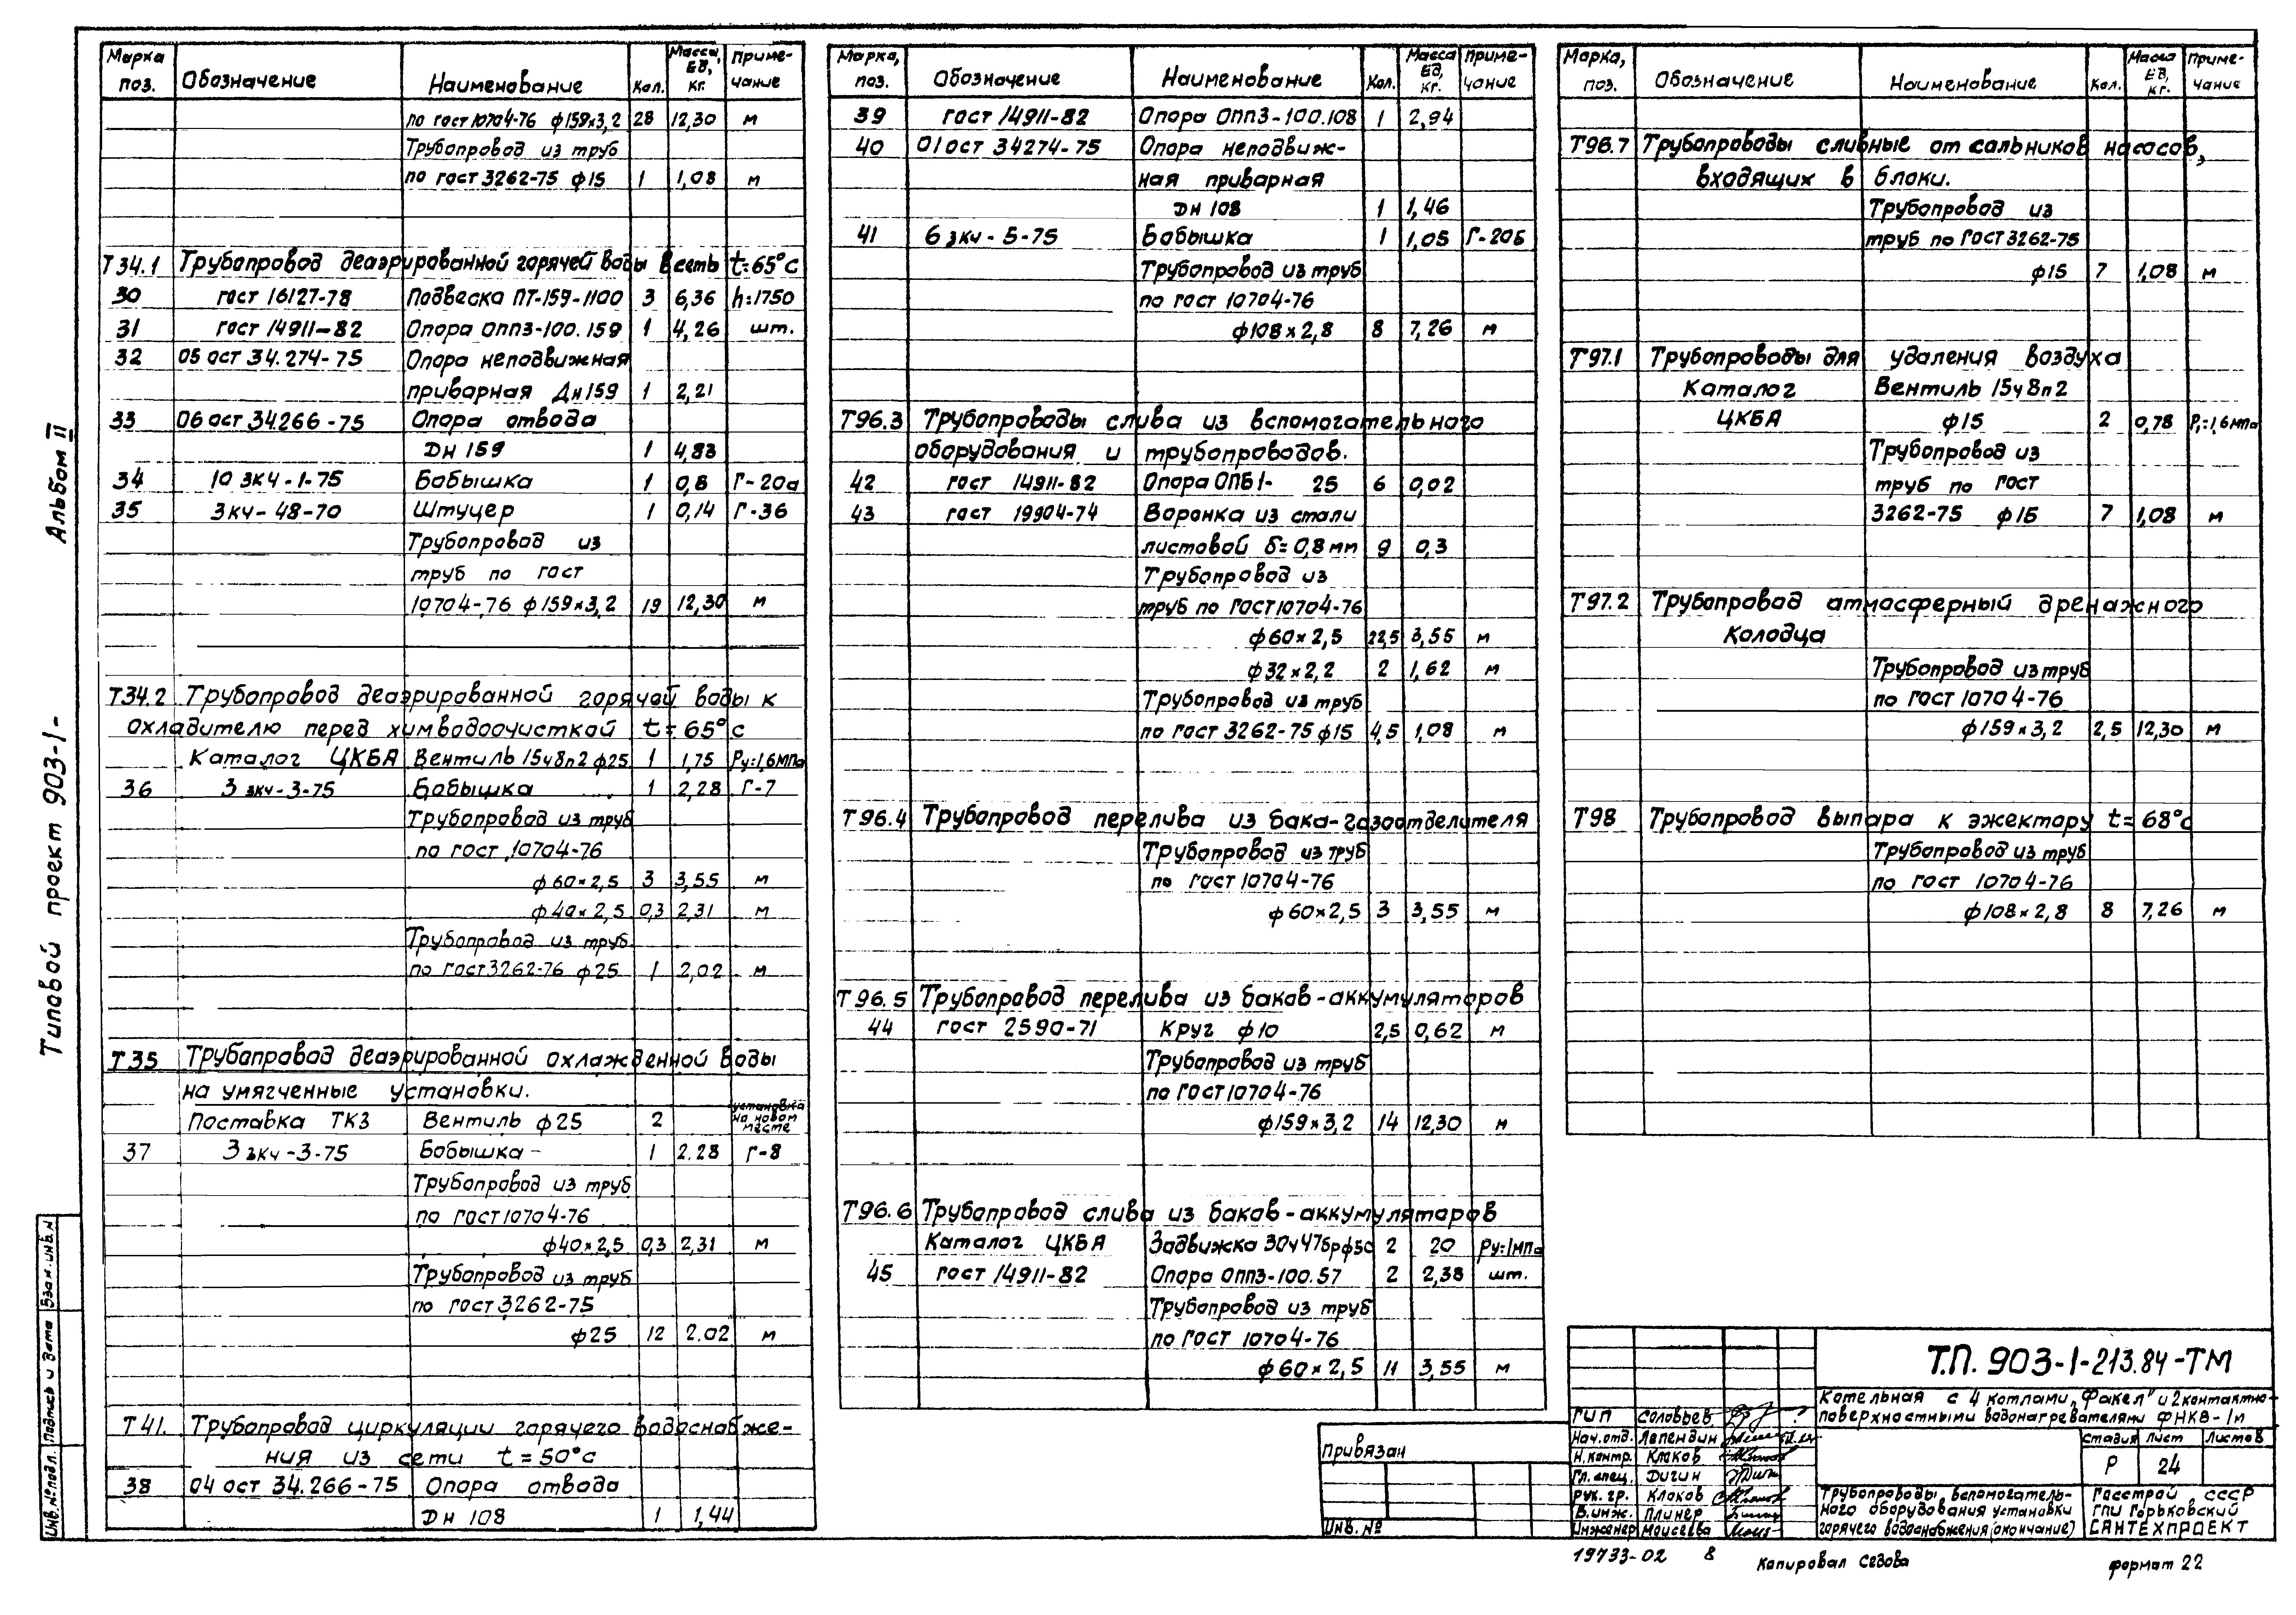 Марка поз. Обозначение Наименование Кол. Масса, ед, кг. Приме-чание
по гост 10704-76 ф159х3,2 28 12,30 м
Трубопровод из труб
по гост 3262-75 ф15 1 1,08 м
Т34.1 Трубопровод деаэрированной горячей воды в сеть t=65°с
30 гост 16127-78 Подвеска ПТ-159-1100 3 6,36 h=1750
31 гост 14911-82 Опора ОПП3-100.159 1 4,26 шт.
32 05 ост 34.274-75 Опора неподвижная
приварная Дн159 1 2,21
33 06 ост 34.266-75 Опора отвода
Дн 159 1 4,83
34 10 ЗКЧ-1-75 Бобышка 1 0,8 Г-20а
35 ЗКЧ-48-70 Штуцер 1 0,14 Г-36
Трубопровод из
труб по гост
10704-76 ф159х3,2 19 12,30 м
Т34.2 Трубопровод деаэрированной горячей воды к
охладителю перед химводоочисткой t=65°с
Каталог ЦКБА Вентиль 15ч8п2 ф25 1 1,75 Ру=1,6МПа
36 3 ЗКЧ-3-75 Бобышка 1 2,28 Г-7
Трубопровод из труб
по гост 10704-76
ф60х2,5 3 3,55 м
ф40х2,5 0,3 2,31 м
Трубопровод из труб
по гост 3262-76 ф25 1 2,02 м
Т35 Трубопровод деаэрированной охлажденной воды
на умягченные установки.
Поставка ТКЗ Вентиль ф25 2 установка на новом месте
37 3 ЗКЧ-3-75 Бобышка 1 2.28 Г-8
Трубопровод из труб
по гост 10704-76
ф40х2,5 0,3 2,31 м
Трубопровод из труб
по гост 3262-75
ф25 12 2.02 м
Т41. Трубопровод циркуляции горячего водоснабже-
ния из сети t=50°с
38 04 ост 34.266-75 Опора отвода
Дн 108 1 1,44
Марка, поз. Обозначение Наименование Кол. Масса ед, кг. Приме-чание
39 гост 14911-82 Опора ОПП3-100.108 1 2,94
40 01 ост 34274-75 Опора неподвиж-
ная приварная
Дн 108 1 1,46
41 6 ЗКЧ-5-75 Бобышка 1 1,05 Г-20б
Трубопровод из труб
по гост 10704-76
ф108х2,8 8 7,26 м
Т96.3 Трубопроводы слива из вспомогательного
оборудования и трубопроводов.
42 гост 14911-82 Опора ОПБ1- 25 6 0,02
43 гост 19904-74 Воронка из стали
листовой δ=0,8мм 9 0,3
Трубопровод из
труб по гост 10704-76
ф60х2,5 22,5 3,55 м
ф32х2,2 2 1,62 м
Трубопровод из труб
по гост 3262-75 ф15 4,5 1,08 м
Т96.4 Трубопровод перелива из бака-газоотделителя
Трубопровод из труб
по гост 10704-76
ф60х2,5 3 3,55 м
Т96.5 Трубопровод перелива из баков-аккумуляторов
44 гост 2590-71 Круг ф10 2,5 0,62 м
Трубопровод из труб
по гост 10704-76
ф159х3,2 14 12,30 м
Т96.6 Трубопровод слива из баков-аккумуляторов
Каталог ЦКБА Задвижка 30ч47бр ф50 2 20 Ру=1МПа
45 гост 14911-82 Опора ОПП3-100.57 2 2,38 шт.
Трубопровод из труб
по гост 10704-76
ф60х2,5 11 3,55 м
Марка, поз. Обозначение Наименование Кол. Масса ед, кг. Приме-чание
Т96.7 Трубопроводы сливные от сальников насосов,
входящих в блоки.
Трубопровод из
труб по гост 3262-75
ф15 7 1,08 м
Т97.1 Трубопроводы для удаления воздуха
Каталог Вентиль 15ч8п2
ЦКБА ф15 2 0,78 Р,=1,6МПа
Трубопровод из
труб по гост
3262-75 ф15 7 1,08 м
Т97.2 Трубопровод атмосферный дренажного
колодца
Трубопровод из труб
по гост 10704-76
ф159х3,2 2,5 12,30 м
Т98 Трубопровод выпара к эжектору t=68°с
Трубопровод из труб
по гост 10704-76
ф108х2,8 8 7,26 м
Типовой проект 903-1- Альбом II
Инв.№подл. Подпись и дата Взам.инв.№
Привязан
Инв.№
Т.П. 903-1-213.84-ТМ
Котельная с 4 котлами „Факел" и 2 контактно-
поверхностными водонагревателями ФНКВ-1м
ГИП Соловьев
Нач.отд. Лапендин
Н.контр. Клоков
Гл.спец. Дигин
Рук.гр. Клоков
В.инж. Плинер
Инженер Моисеева
Стадия Лист Листов
Р 24
Трубопроводы вспомогатель-
ного оборудования установки
горячего водоснабжения (окончание)
Госстрой СССР
ГПИ Горьковский
САНТЕХПРОЕКТ
19733-02 8 Копировал Седова формат 22